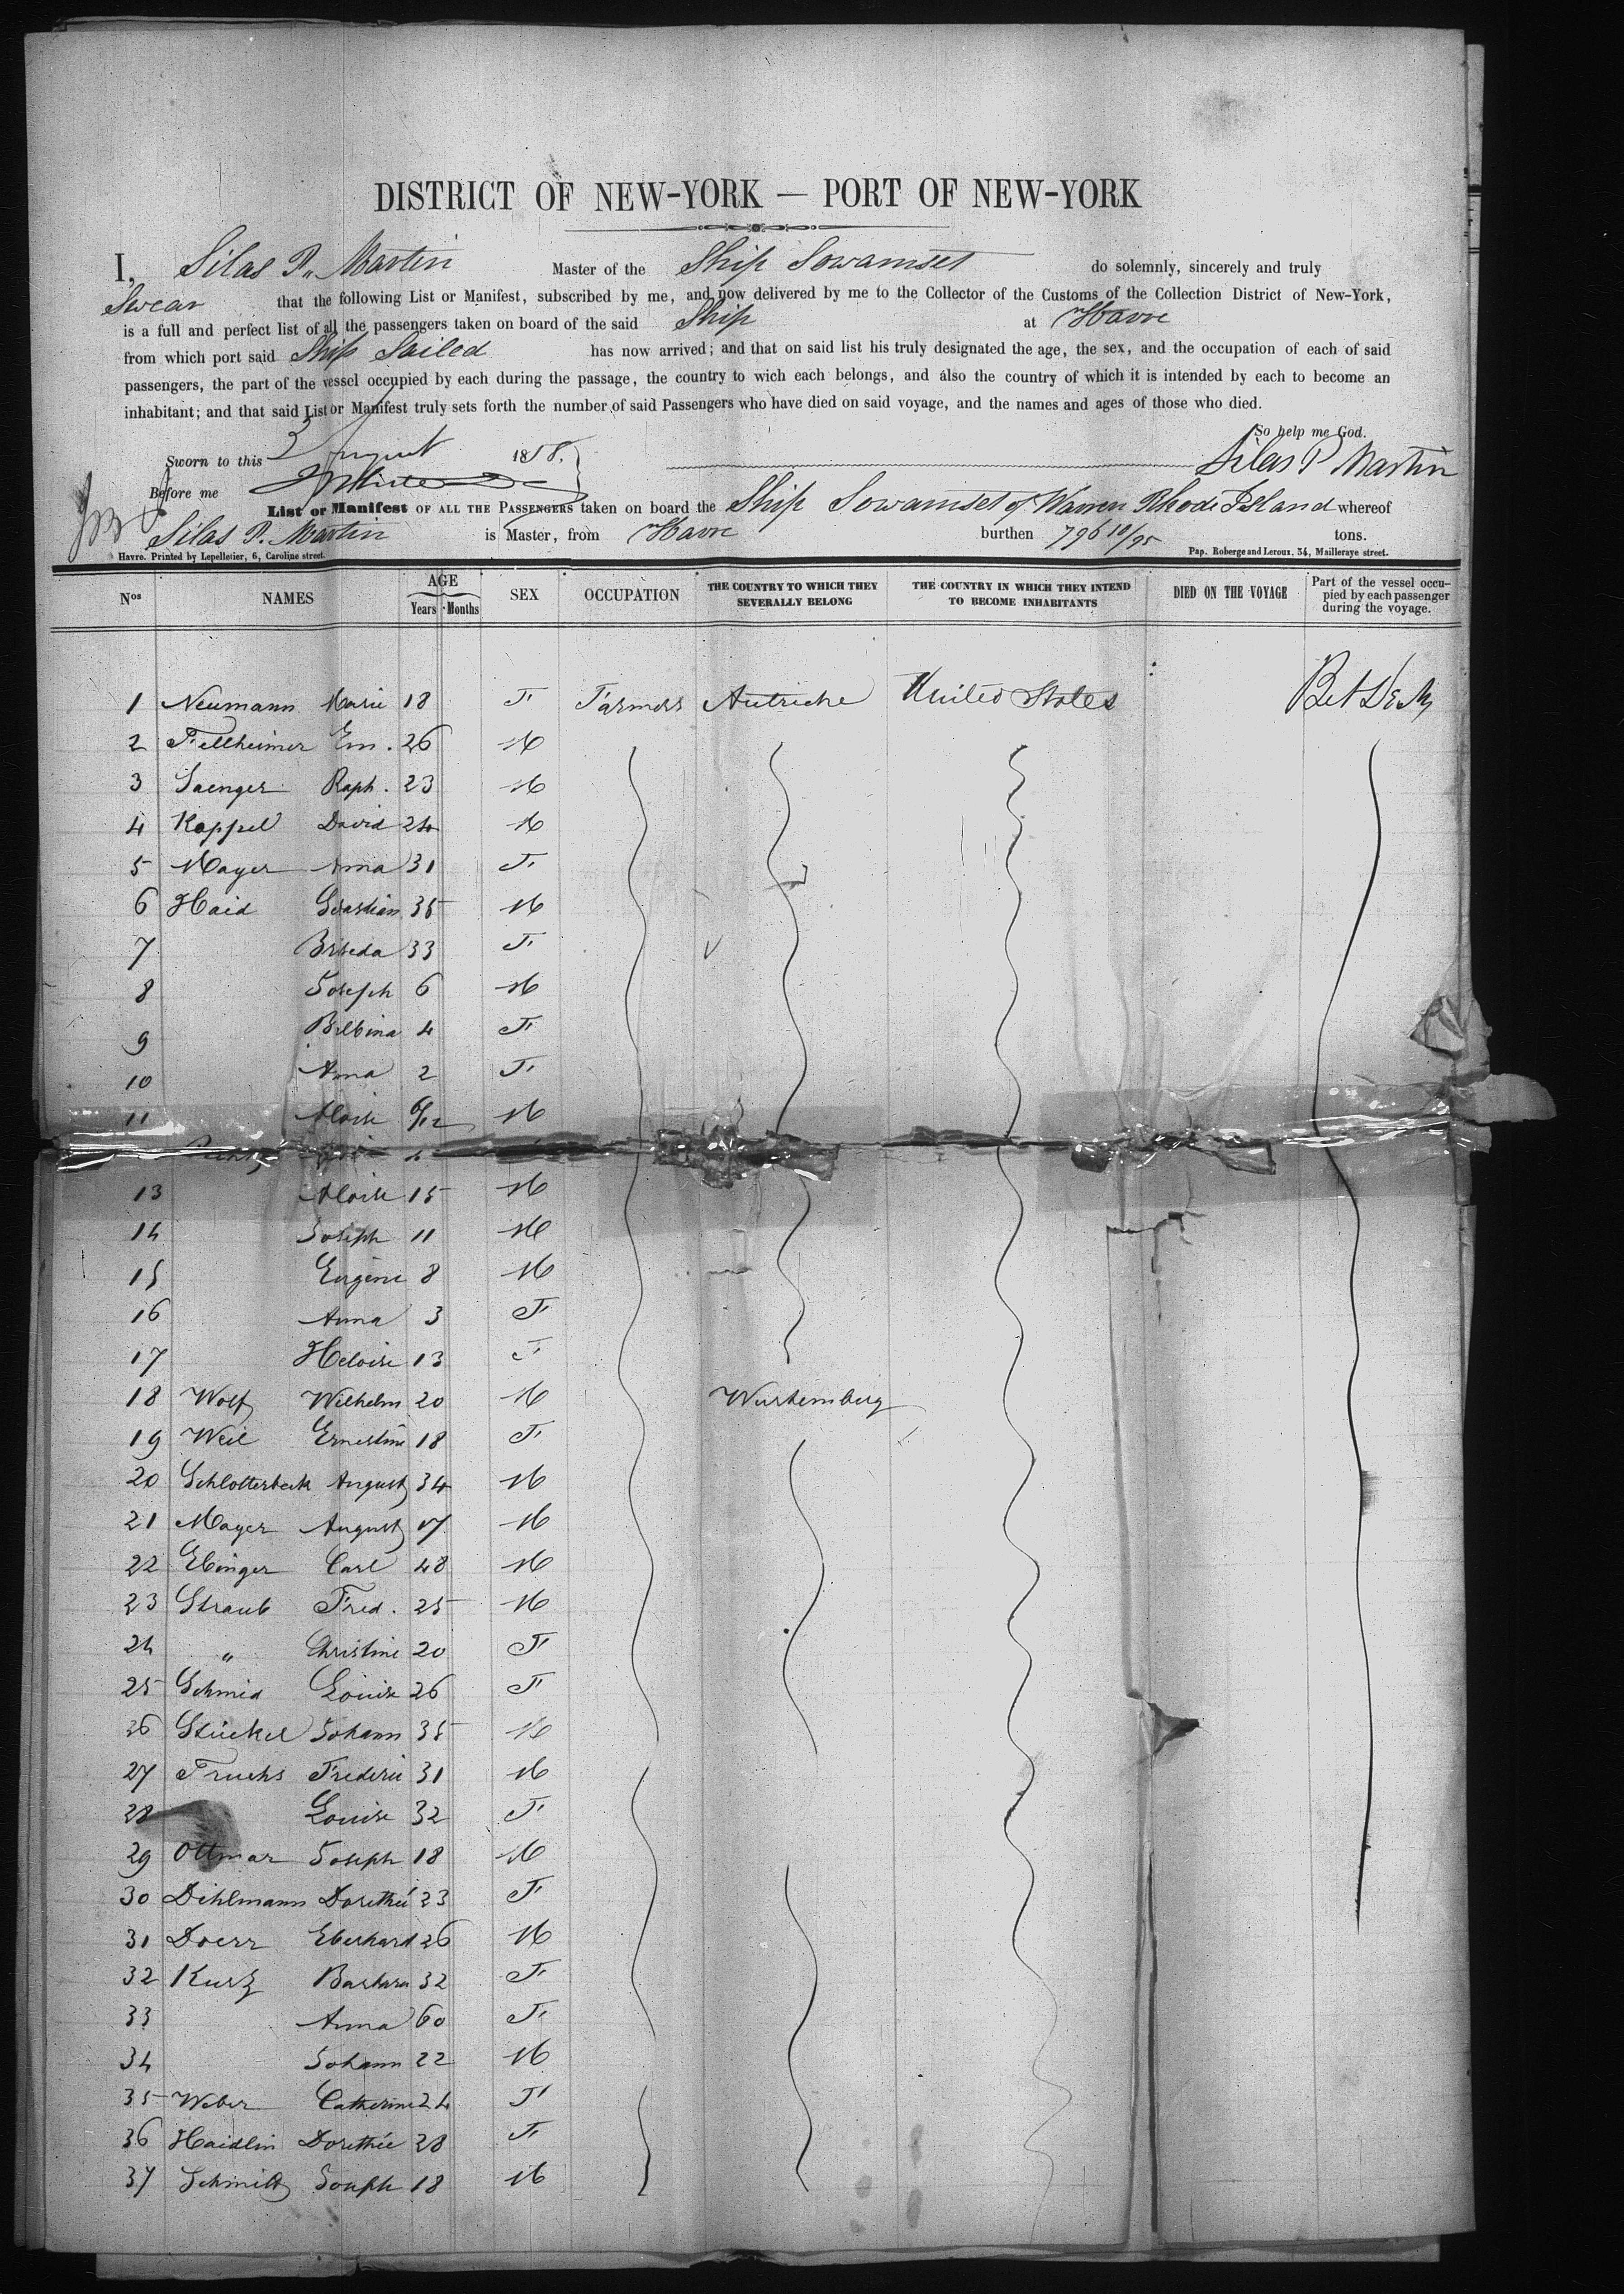 DISTRICT OF NEW-YORK — PORT OF NEW-YORK
I, Silas P. Martin Master of the Ship Sowamset do solemnly, sincerely and truly
Swear that the following List or Manifest, subscribed by me, and now delivered by me to the Collector of the Customs of the Collection District of New-York,
is a full and perfect list of all the passengers taken on board of the said Ship at Havre
from which port said Ship Sailed has now arrived; and that on said list his truly designated the age, the sex, and the occupation of each of said
passengers, the part of the vessel occupied by each during the passage, the country to wich each belongs, and álso the country of which it is intended by each to become an
inhabitant; and that said List or Manifest truly sets forth the number of said Passengers who have died on said voyage, and the names and ages of those who died.
So help me God.
Sworn to this 3 August 1858. Silas P Martin
Before me
List or Manifest OF ALL THE PASSENGERS taken on board the Ship Sowamset of Warren Rhode Island whereof
Silas P. Martin is Master, from Havre burthen 796 10/95 tons.
Havre. Printed by Lepelletier, 6, Caroline street. Pap. Roberge and Leroux, 34, Mailleraye street.
Nos NAMES AGE Years Months SEX OCCUPATION THE COUNTRY TO WHICH THEY SEVERALLY BELONG THE COUNTRY IN WHICH THEY INTEND TO BECOME INHABITANTS DIED ON THE VOYAGE Part of the vessel occupied by each passenger during the voyage.
1 Neumann Marie 18 F Farmers Autriche United States Bet Deck
2 Fellheimer Em. 26 M
3 Saenger Raph. 23 M
4 Kappel David 24 M
5 Mayer Anna 31 F
6 Haid 35 M
7 33 F
8 Joseph 6 M
9 Balbina 4 F
10 Anna 2 F
11 Aloise 6/12 M
13 Aloise 15 M
14 Joseph 11 M
15 Eugène 8 M
16 Anna 3 F
17 Heloise 13 F
18 Wolf Wilhelm 20 M Wurtemberg
19 Weil Ernestine 18 F
20 Schlotterbeck August 34 M
21 Mayer August 17 M
22 Ebinger Carl 48 M
23 Straub Fred. 25 M
24 " Christine 20 F
25 Schmid Louise 26 F
26 Stückel Johann 35 M
27 Fruehs Frederic 31 M
28 Louise 32 F
29 Ottmar Joseph 18 M
30 Dihlmann Dorethée 23 F
31 Doerr Eberhard 26 M
32 Kurz Barbara 32 F
33 Anna 60 F
34 Johann 22 M
35 Weber Catherine 24 F
36 Haidlin Dorethée 28 F
37 Schmitt Joseph 18 M